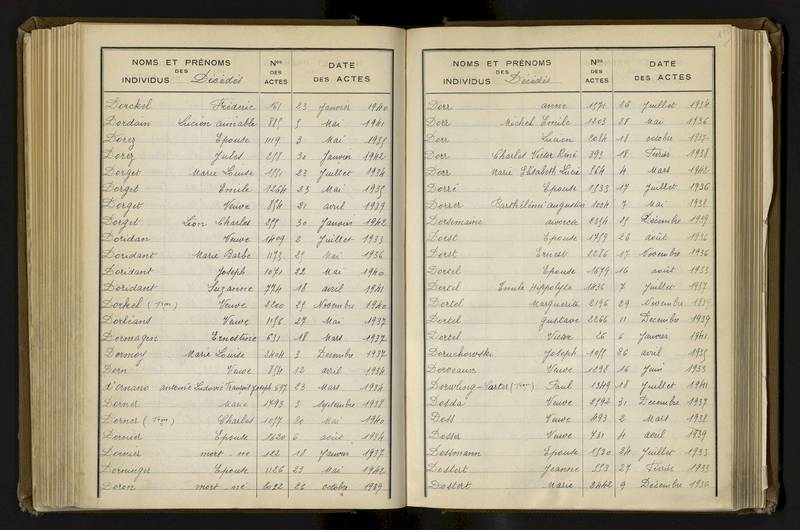 NOMS ET PRÉNOMS
DES
INDIVIDUS Décédés
Nos
DES
ACTES
DATE
DES ACTES
Dorckel Fréderic 161 23 Janvier 1940
Dordain Lucien aimable 5 Mai 1941
Dorez Epouse 1119 3 Mai 1935
Dorez Jules 30 Janvier 1942
Dorget Marie Louise 23 Juillet 1934
Dorget Emile 1264 23 Mai 1935
Dorget Veuve 21 avril 1939
Dorget Léon Charles 30 Janvier 1942
Doridan Veuve 1409 2 Juillet 1933
Doridant Marie Barbe 1173 Mai 1936
Doridant Joseph 1071 22 Mai 1940
Doridant Suzanne 774 18 avril 1941
Dorkel Veuve 2200 Novembre 1940
Dorléans Veuve 1156 27 Mai 1937
Dormagen Ernestine 631 18 Mars 1937
Dormoy Marie Louise 2404 3 Décembre 1937
Dorn Veuve 854 12 avril 1934
d'Ornano antoine Ludovic Joseph 23 Mars 1934
Dorner Marie 1793 3 Septembre 1938
Dorner Charles 1077 20 Mai 1940
Dornier Epouse 1620 6 août 1934
Dornier mort-né 122 18 Janvier 1937
Dorninger Epouse 1126 23 Mai 1942
Doron mort né 2022 26 octobre 1939
NOMS ET PRÉNOMS
DES
INDIVIDUS Décédés
Nos
DES
ACTES
DATE
DES ACTES
Dorr anne 1571 26 Juillet 1934
Dorr Michel Emile 1203 28 Mai 1936
Dorr Lucien 2084 18 octobre
Dorr Charles Victor René 393 18 Février 1938
Dorr Marie Elisabeth Lucie 564 4 Mars 1942
Dorré Epouse 1533 17 Juillet 1936
Dorrer Barthélémi augustin 1034 7 Mai 1938
divorcée Décembre 1939
Dorst Epouse 1759 26 août 1936
Dorst Ernest 2286 17 Novembre 1936
Dortel Epouse 1679 16 août 1933
Dortel Emile Hippolyte 1436 7 Juillet 1937
Dortel Marguerite 2196 29 Novembre 1939
Dortel Gustave 2266 11 Décembre 1939
Dortel Victor 26 6 Janvier 1941
Doruchowski Joseph 26 avril 1935
Dorveaux Veuve 1298 16 Juin 1933
Paul 1349 18 Juillet 1941
Dosda Veuve 2592 31 Décembre 1937
Doss Veuve 493 2 Mars 1938
Dosser Veuve 731 4 avril 1939
Dossmann Epouse 1530 24 Juillet 1933
Dostert Jeanne 27 Février 1933
Dostert Marie 2442 9 Décembre 1936